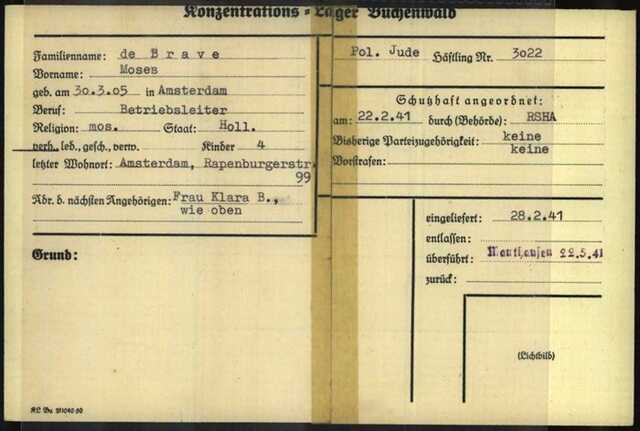 Konzentrations-Lager Buchenwald
Familienname: de Brave
Vorname: Moses
geb. am 30.3.05 in Amsterdam
Beruf: Betriebsleiter
Religion: mos. Staat: Holl.
verh., led., gesch., verw. Kinder 4
letzter Wohnort: Amsterdam, Rapenburgerstr.
99
Adr. d. nächsten Angehörigen: Frau Klara B.,
wie oben
Grund:
Pol. Jude Häftling Nr. 3022
Schutzhaft angeordnet:
am: 22.2.41 durch (Behörde): RSHA
Bisherige Parteizugehörigkeit: keine
Vorstrafen: keine
eingeliefert: 28.2.41
entlassen:
überführt: Mauthausen 22.5.41
zurück:
(Lichtbild)